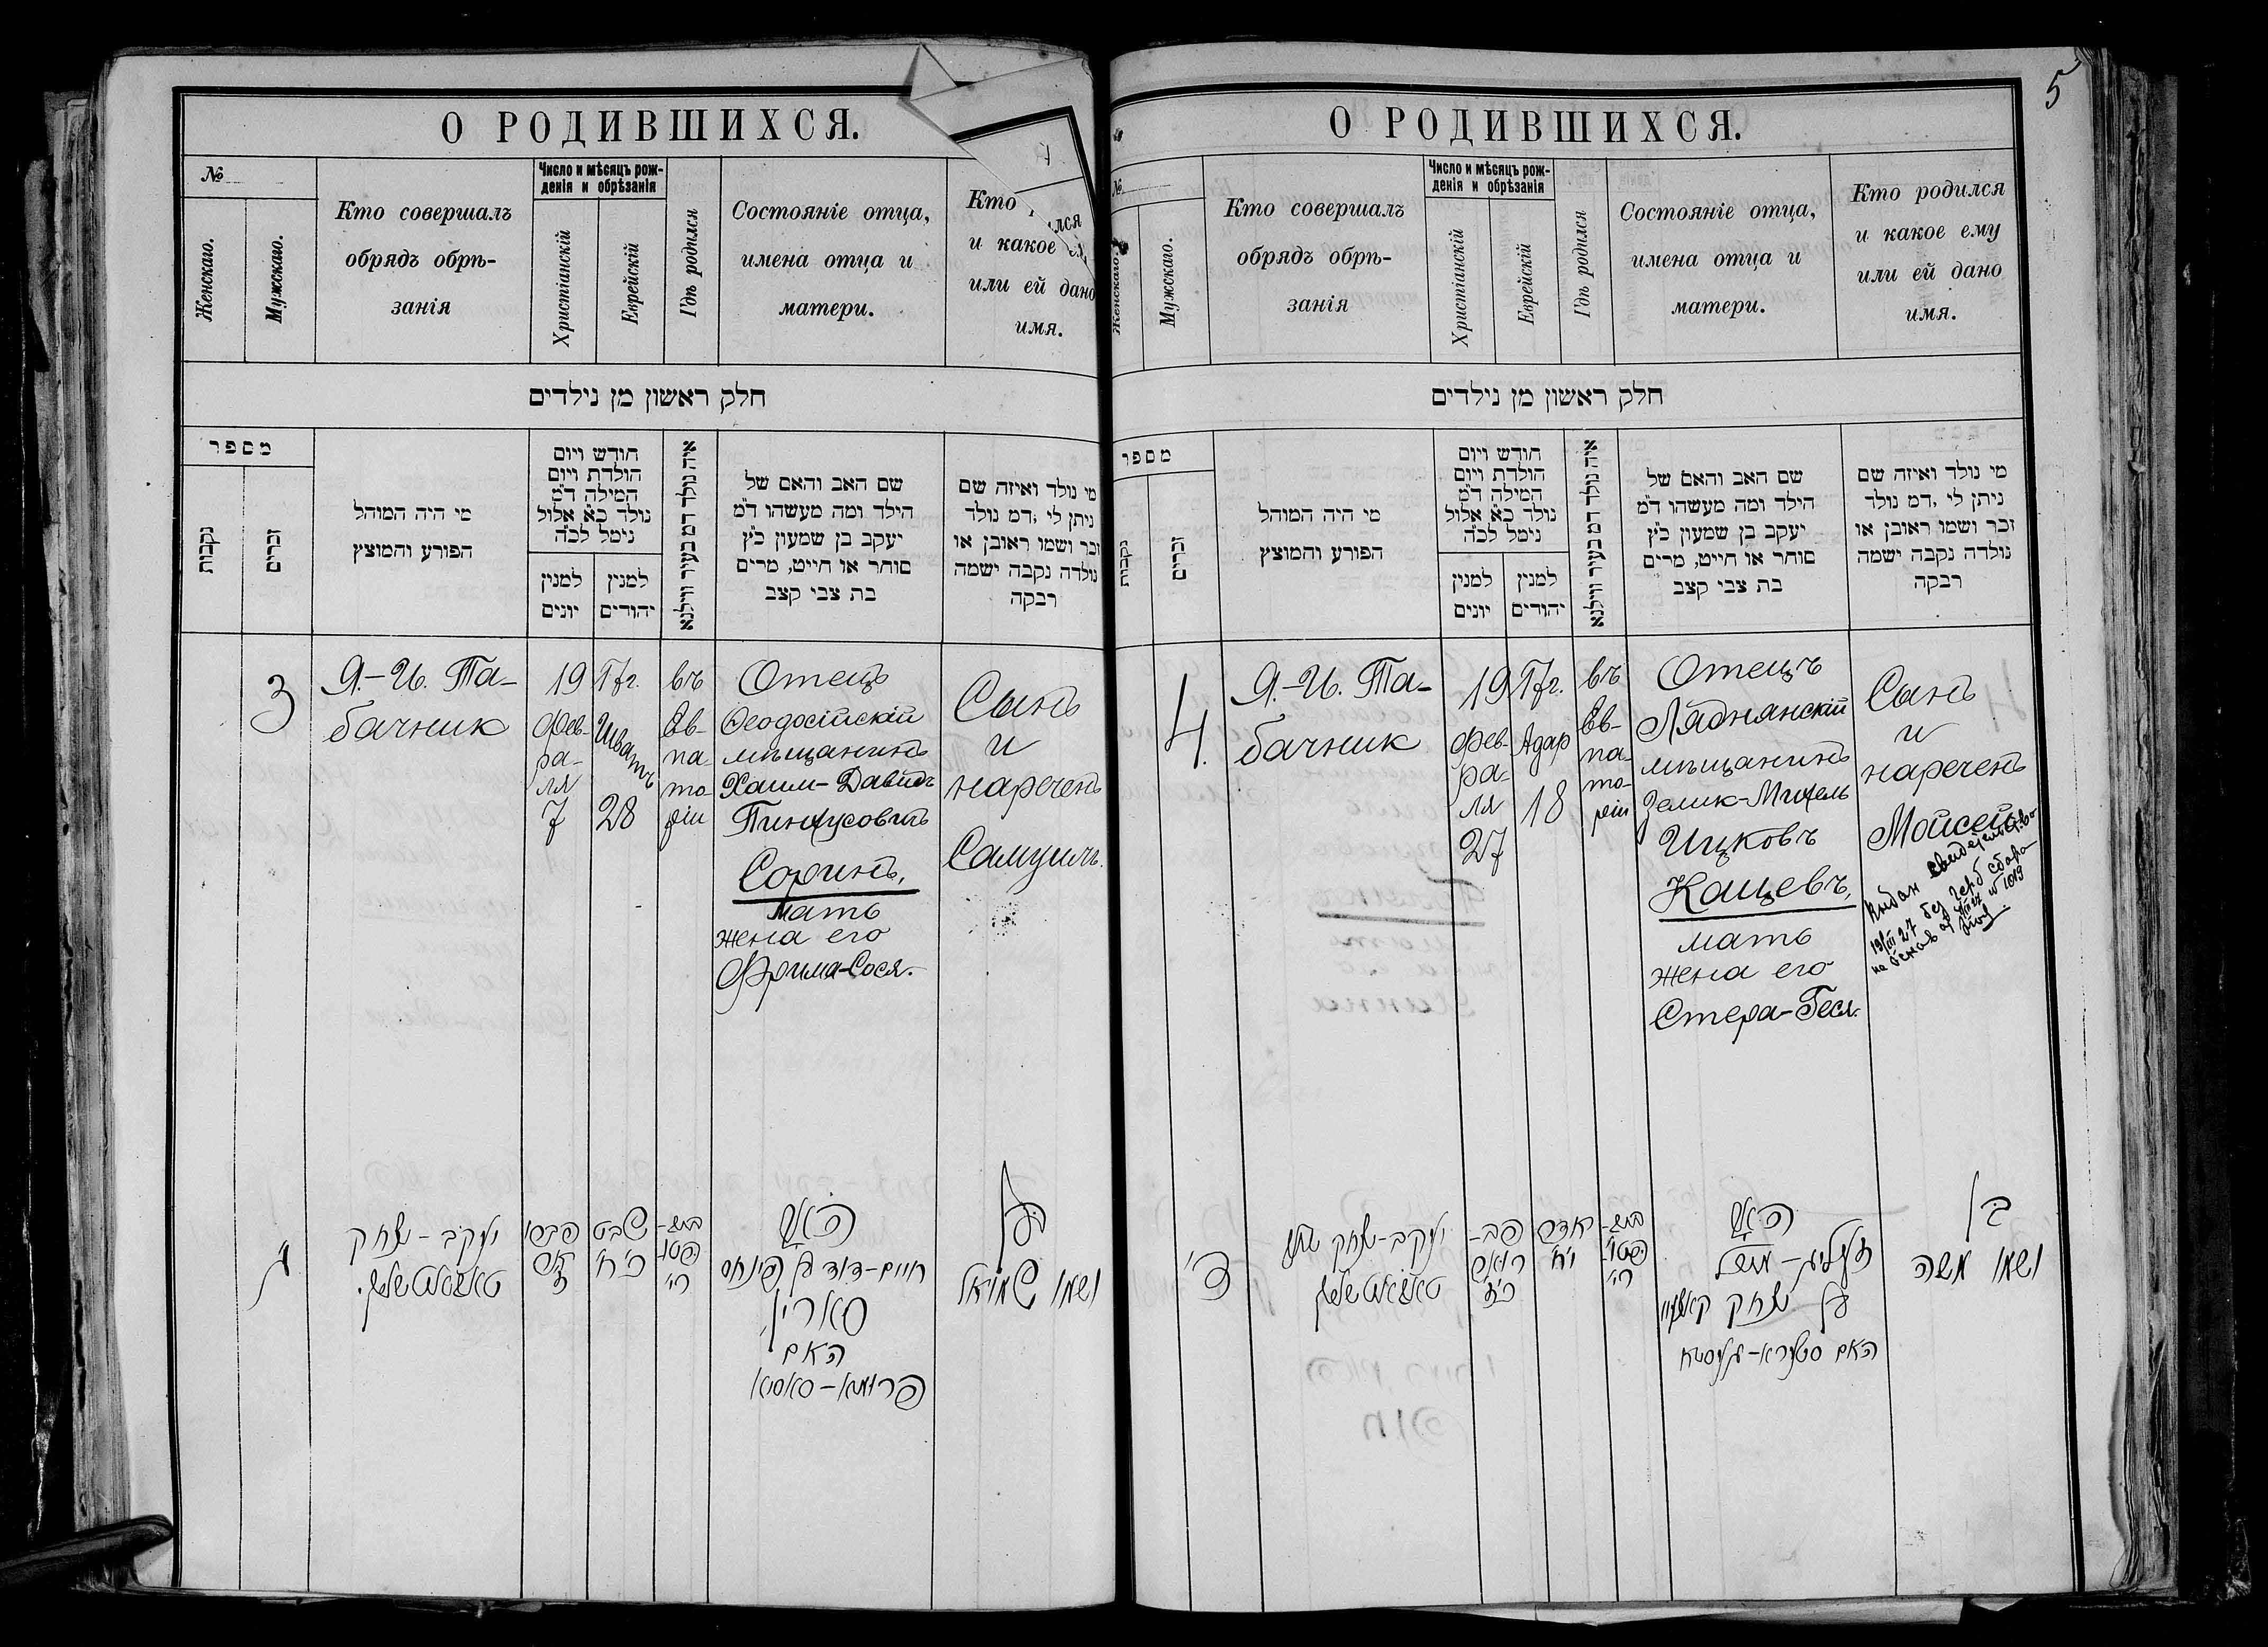 О РОДИВШИХСЯ.
№
Женскаго.
Мужскаго.
Кто совершалъ
обрядъ обрѣ-
занія
Число и мѣсяцъ рож-
денія и обрѣзанія
Христіанскій
Еврейскій
Гдѣ родился
Состояніе отца,
имена отца и
матери.
Кто
лся
и какое
или ей дано
имя.
חלק ראשון מן נילדים
מספר
נקבות
זכרים
מי היה המוהל
הפורע והמוצץ
חודש ויום
הולדת ויום
המילה ד"מ
נולד כ"א אלול
נימל לכ"ה
למנין
יונים
למנין
יהודים
איה נולד דמ בעיר ווילנא
שם האב והאם של
הילד ומה מעשהו ד"מ
יעקב בן שמעון כ"ץ
סוחר או חייט, מרים
בת צבי קצב
מי נולד ואיזה שם
ניתן לי ,דמ נולד
זכר ושמו ראובן או
נולדה נקבה ישמה
רבקה
3
Я.-И. Та-
бачник
19 17г.
Фев-
ра-
ля
7
Шватъ
28
въ
Ев-
па-
то-
ріи
Отецъ
Ѳеодосійскій
мѣщанинъ
Хаим-Давидъ
Пинхусовъ
Соринъ,
мать
жена его
Фрима-Сося.
Сынъ
и
нареченъ
Самуилъ.
ג
יעקב - יצחק
שבט
כ"ח
האב
חיים-דוד בן פינחס
סארין,
האם
פרומא-סאסיא
בן
ושמו שמואל
5
О РОДИВШИХСЯ.
№
Женскаго.
Мужскаго.
Кто совершалъ
обрядъ обрѣ-
занія
Число и мѣсяцъ рож-
денія и обрѣзанія
Христіанскій
Еврейскій
Гдѣ родился
Состояніе отца,
имена отца и
матери.
Кто родился
и какое ему
или ей дано
имя.
חלק ראשון מן נילדים
מספר
נקבות
זכרים
מי היה המוהל
הפורע והמוצץ
חודש ויום
הולדת ויום
המילה ד"מ
נולד כ"א אלול
נימל לכ"ה
למנין
יונים
למנין
יהודים
איה נולד דמ בעיר ווילנא
שם האב והאם של
הילד ומה מעשהו ד"מ
יעקב בן שמעון כ"ץ
סוחר או חייט, מרים
בת צבי קצב
מי נולד ואיזה שם
ניתן לי ,דמ נולד
זכר ושמו ראובן או
נולדה נקבה ישמה
רבקה
4.
Я.-И. Та-
бачник
19 17г.
Фев-
ра-
ля
27
Адар
18
въ
Ев-
па-
то-
ріи
Отецъ
Ляднянскій
мѣщанинъ
Зелик-Михель
Ицковъ
Кацевъ,
мать
жена его
Стера-Геся.
Сынъ
и
нареченъ
Мойсей
Выдан свидетельство
19/III 27 без герб сбора
№ 1019
ד'
יעקב-יצחק
האב
בן יצחק
האם
בן
ושמו משה